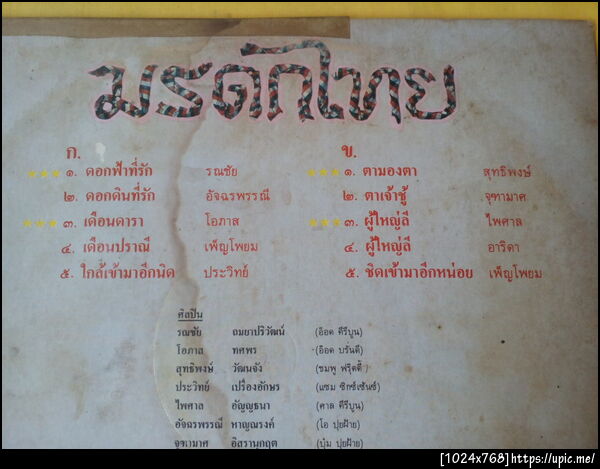 มรดกไทย
ก. ข.
★★★ ๑. ดอกฟ้าที่รัก รณชัย ★★★ ๑. ตามองตา สุทธิพงษ์
๒. ดอกดินที่รัก อัจฉรพรรณี ๒. ตาเจ้าชู้ จุฑามาศ
★★★ ๓. เดือนดารา โอภาส ★★★ ๓. ผู้ใหญ่ลี ไพศาล
๔. เดือนปราณี เพ็ญโพยม ๔. ผู้ใหญ่ลี อาริดา
๕. ใกล้เข้ามาอีกนิด ประวิทย์ ๕. ชิดเข้ามาอีกหน่อย เพ็ญโพยม
ศิลปิน
รณชัย ถมยาปริวัฒน์ (อ๊อด คีรีบูน)
โอภาส ทศพร (อ๊อด บรั่นดี)
สุทธิพงษ์ วัฒนจัง (ชมพู ฟรุ๊ตตี้)
ประวิทย์ เปรื่องอักษร (แซม ซิกซ์เซ้นซ์)
ไพศาล อัญญธนา (ศาล คีรีบูน)
อัจฉรพรรณี หาญณรงค์ (โอ ปุยฝ้าย)
จุฑามาศ อิสรานุกฤต (ปุ้ม ปุยฝ้าย)
[1024x768]https://upic.me/